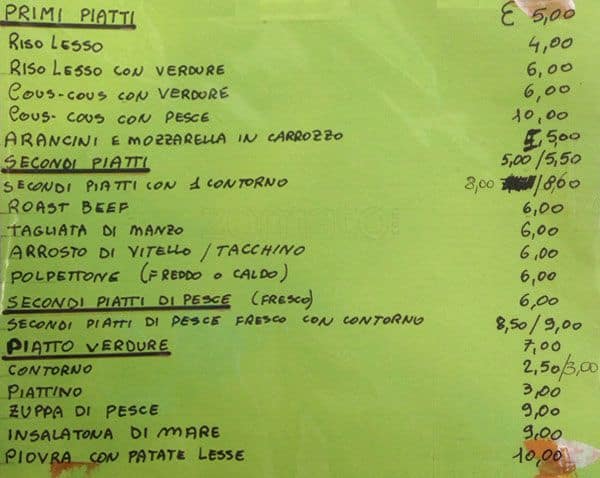 PRIMI PIATTI € 5,00
RISO LESSO 4,00
RISO LESSO CON VERDURE 6,00
COUS-COUS CON VERDURE 6,00
COUS-COUS CON PESCE 10,00
ARANCINI E MOZZARELLA IN CARROZZO 1,500
SECONDI PIATTI 5,00/5,50
SECONDI PIATTI CON 1 CONTORNO 8,00 /8,60
ROAST BEEF 6,00
TAGLIATA DI MANZO 6,00
ARROSTO DI VITELLO / TACCHINO 6,00
POLPETTONE (FREDDO O CALDO) 6,00
SECONDI PIATTI DI PESCE (FRESCO) 6,00
SECONDI PIATTI DI PESCE FRESCO CON CONTORNO 8,50/9,00
PIATTO VERDURE 7,00
CONTORNO 2,50/3,00
PIATTINO 3,00
ZUPPA DI PESCE 9,00
INSALATONA DI MARE 9,00
PIOVRA CON PATATE LESSE 10,00